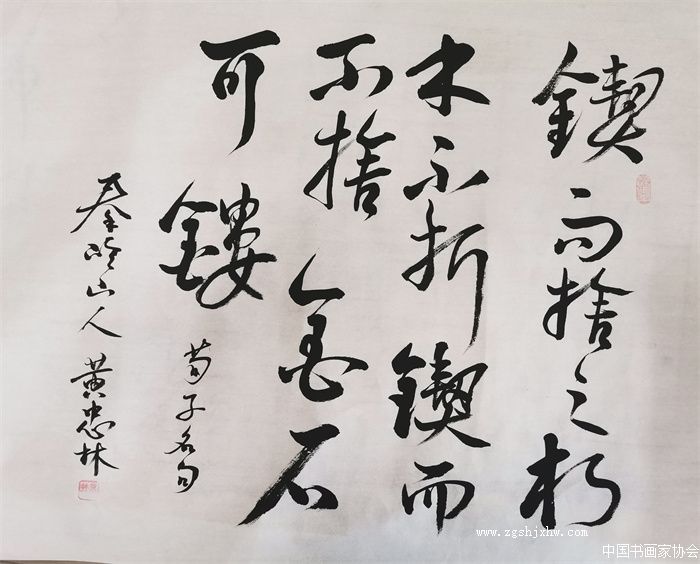 鍥而捨之朽
木不折鍥而
不捨金石
可鏤
荀子名句
秦岭山人黄忠林
www.zgshjxhw.com
中国书画家协会